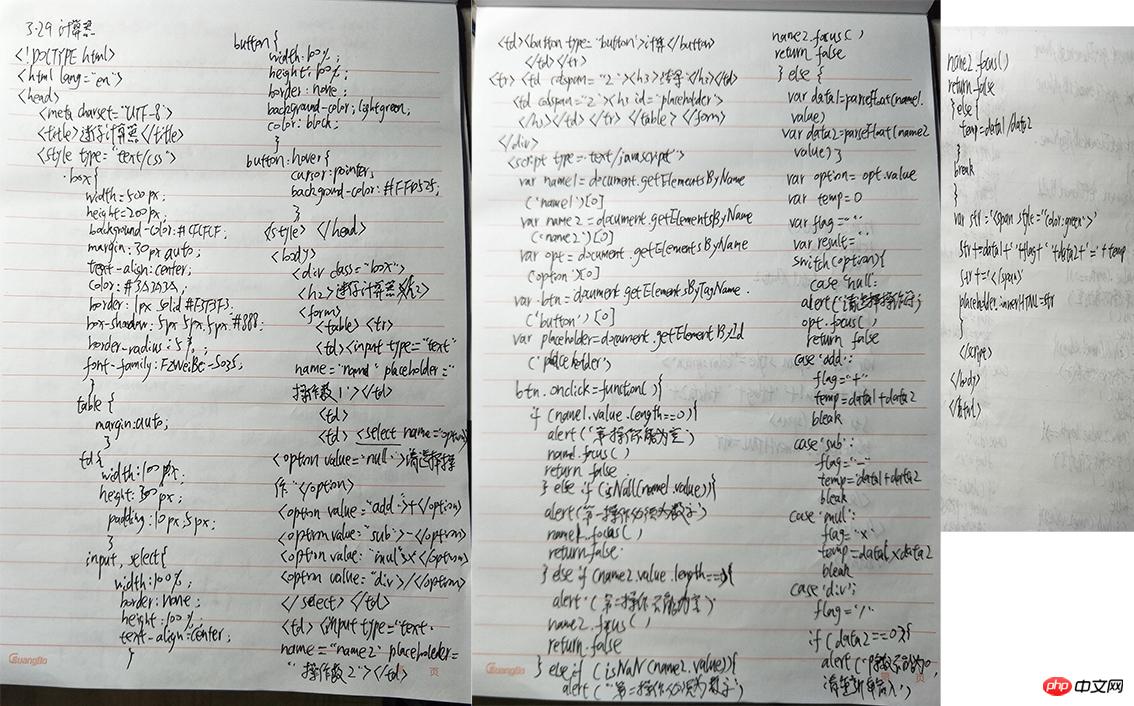 3.29 计算器
<!DOCTYPE html>
<html lang="en">
<head>
<meta charset="UTF-8">
<title>迷你计算器</title>
<style type="text/css">
.box{
width=500px;
height=200px;
background-color:#CFCFCF;
margin:30px auto;
text-align:center;
color:#3A2A3A;
border:1px solid #F3F3F3;
box-shadow:5px 5px 5px #888;
border-radius:5%;
font-family:FZWeiBe-S03S;
}
table{
margin:auto;
}
td{
width:100px;
height:30px;
padding:10px,5px;
}
input,select{
width:100%;
border:none;
height:100%;
text-align:center;
}
button{
width:100%;
height:100%;
border:none;
background-color:lightgreen;
color:black;
}
button:hover{
cursor:pointer;
background-color:#FFD525;
}
<style> </head>
<body>
<div class="box">
<h2>迷你计算器</h2>
<form>
<table> <tr>
<td><input type="text"
name="name1" placeholder="
操作数1"></td>
<td>
<td> <select name="option">
<option value="null">请选择操
作"</option>
<option value="add">+</option>
<option value="sub">-</option>
<option value="mul">x</option>
<option value="div">/</option>
</select> </td>
<td> <input type="text"
name="name2" placeholeder=
"操作数2"></td>
<td><button type="button">计算</button>
</td></tr>
<tr> <td colspan="2"><h3>结果</h3></td>
<td colspan="2"><h3 id="placeholder">
</h3></td> </tr> </table> </form>
</div>
<script type="text/javascript">
var name1=document.getElementsByName
('name1')[0]
var name2=document.getElementsByName
('name2')[0]
var opt=document.getElementsByName
('option')[0]
var btn=document.getElementsByTagName
('button')[0]
var placeholder=document.getElementById
('placeholder')
btn.onclick=function(){
if(name1.value.length==0){
alert('第一操作不能为空')
name1.focus()
return false
} else if(isNaN(name1.value)){
alert('第一操作必须为数字')
name1.focus()
return false
} else if(name2.value.length==){
alert('第二操作不能为空')
name2.focus()
return false
} else if(isNaN(name2.value)){
alert('第二操作必须为数字')
name2.focus()
return false
} else {
var data1=parseFloat(name1.
value)
var data2=parseFloat(name2
value)}
var option=opt.value
var temp=0
var flag=''
var result=''
swith(option){
case'null:
alert('请选择操作符')
opt.focus()
return false
case'add':
flag='+'
temp=data1+data2
bleak
case'sub':
flag='-'
temp=data1+data2
bleak
case'mul':
flag='x'
temp=data1xdata2
bleak
case'div':
flag='/'
if(data2==0){
alert('除数不能为0,
请重新输入')
name2.focus()
return false
}else{
temp=data1/data2
}
break
}
var str='<span style="color:green">'
str+=data1+' '+flag+' '+data2+'='+temp
str+='</span>'
placeholder.innerHTML=str
}
</script>
</body>
</html>
GuangBo
页
GuangBo
页
php 中文网